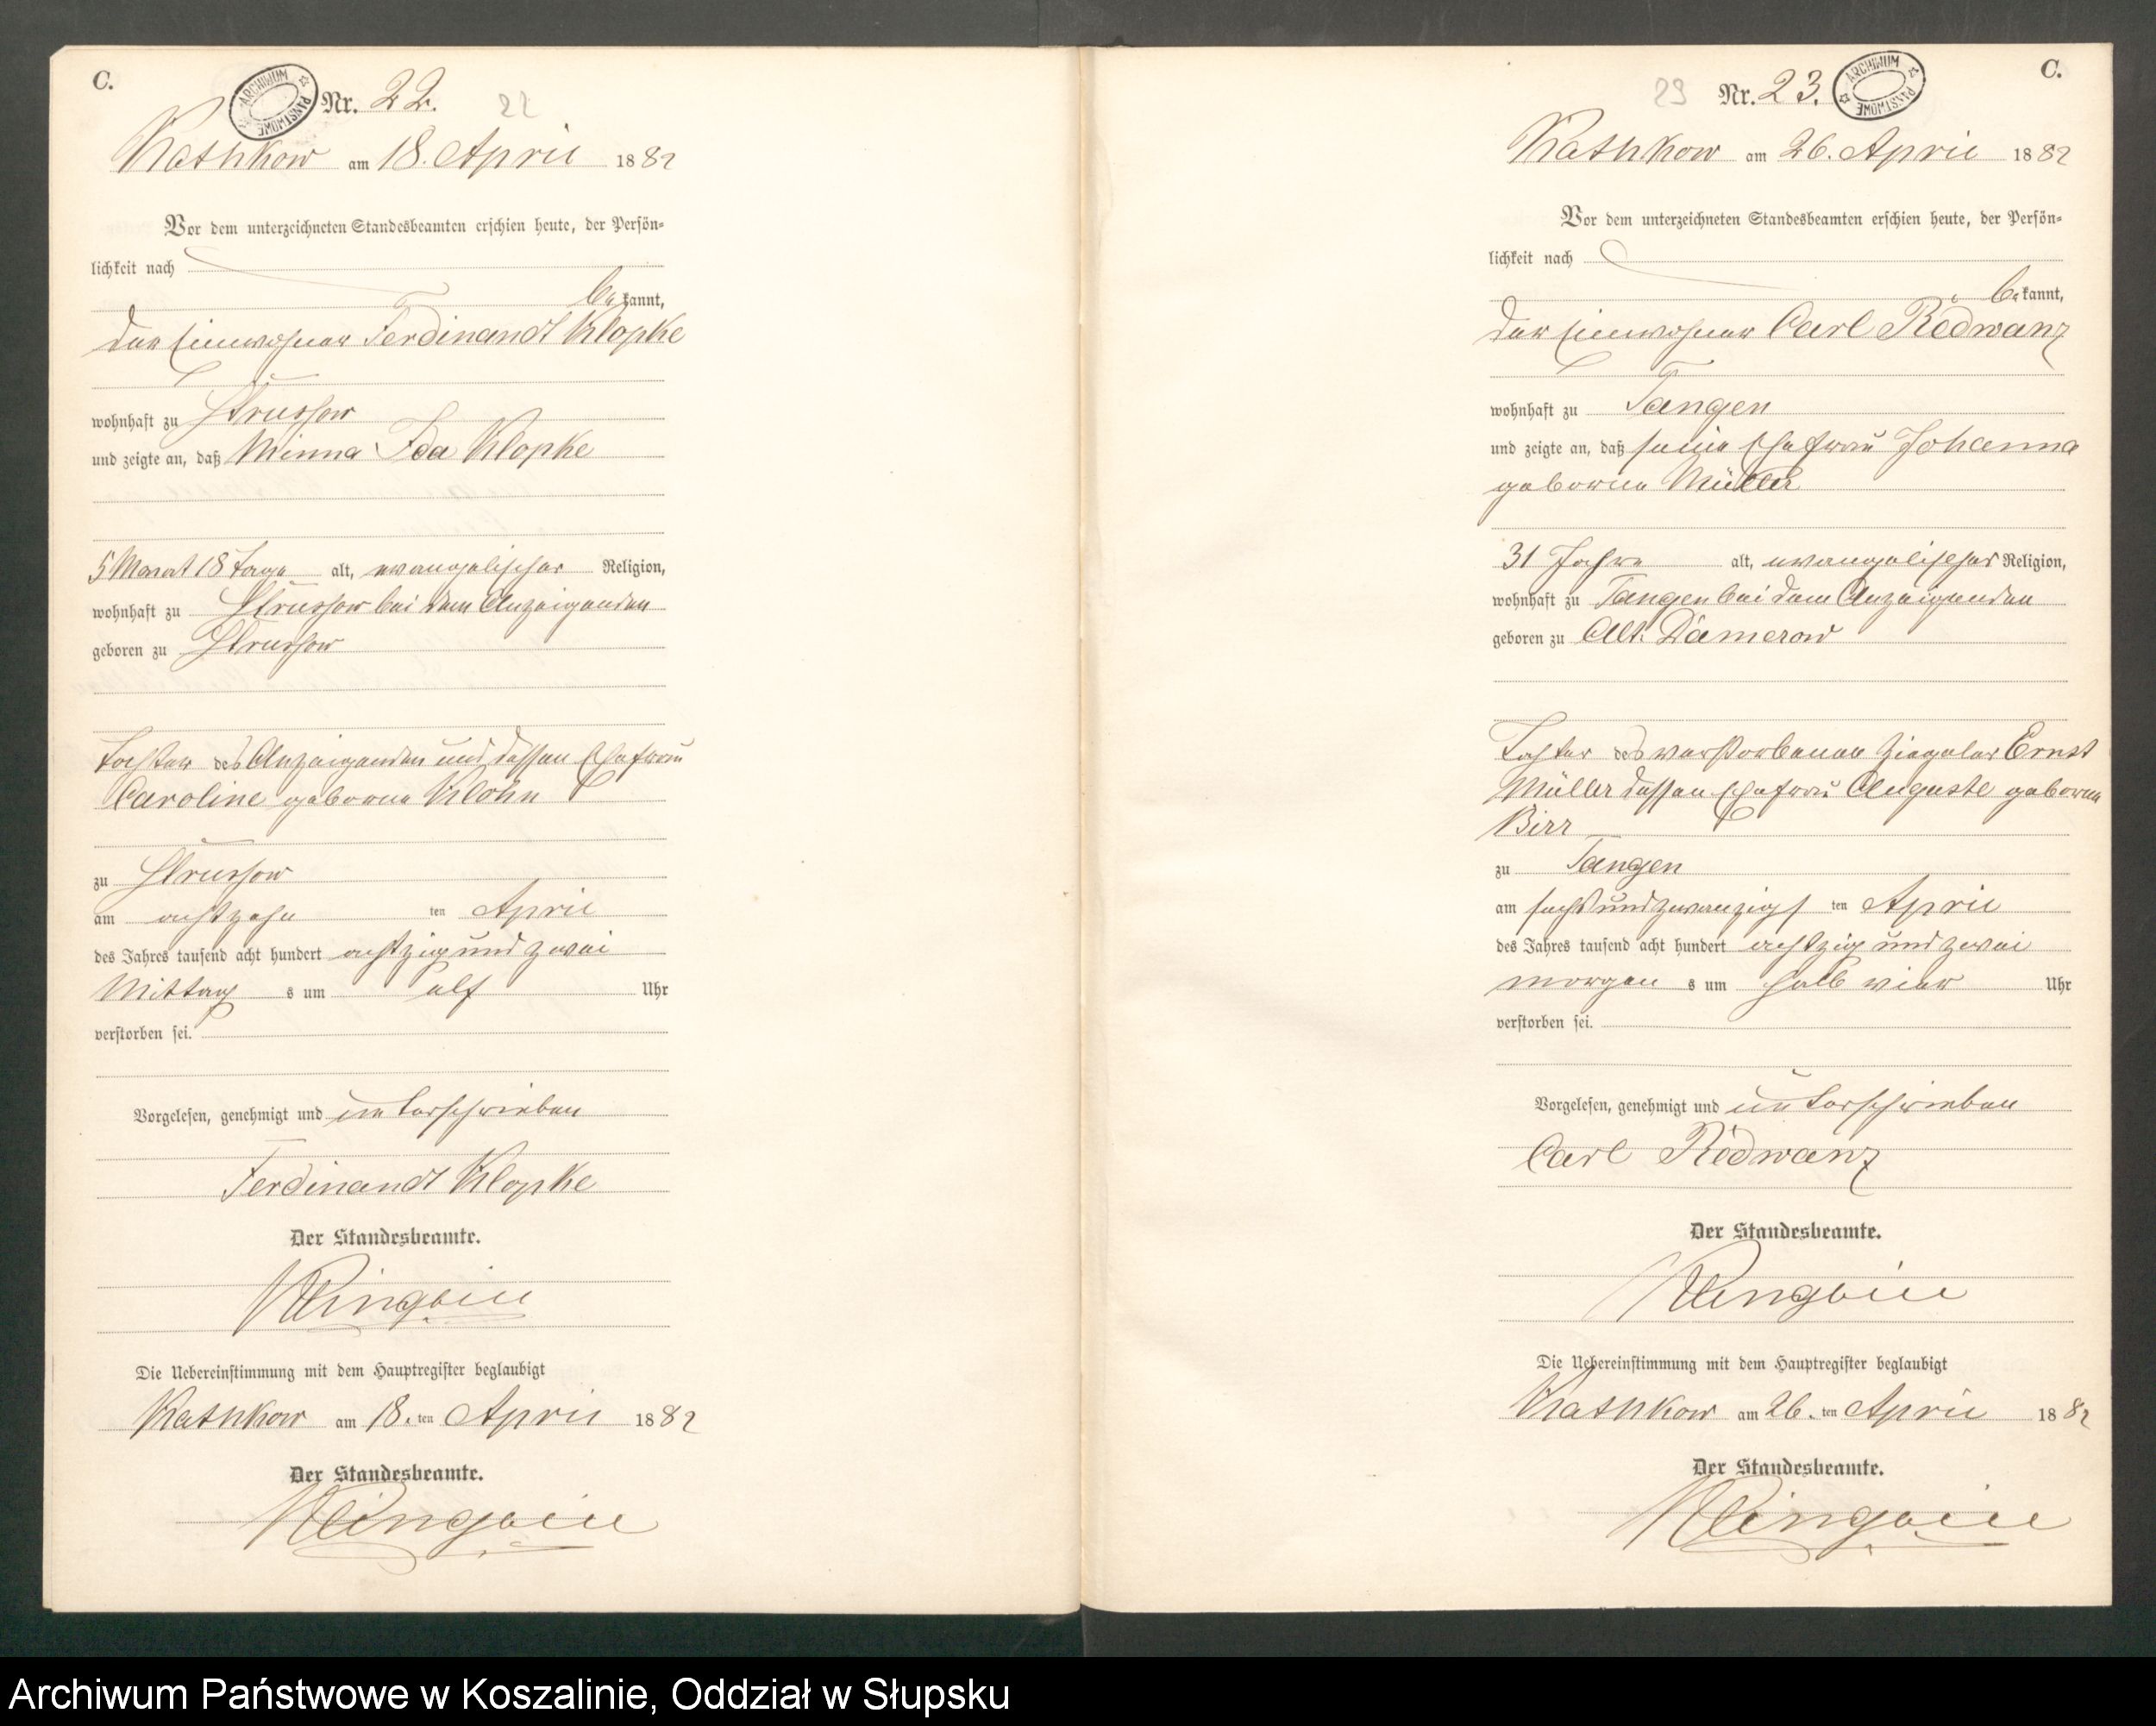 C.
ARCHIWUM PAŃSTWOWE
Nr. 22.
22
Rathkow am 18. April 1882
Vor dem unterzeichneten Standesbeamten erschien heute, der Persön-
lichkeit nach
be kannt,
der Einwohner Ferdinandt Klopke
wohnhaft zu Strussow
und zeigte an, daß Minna Ida Klopke
5 Monat 18 Tage alt, evangelischer Religion,
wohnhaft zu Strussow bei dem Anzeigenden
geboren zu Strussow
Tochter des Anzeigenden und dessen Ehefrau
Caroline geborne Klohn
zu Strussow
am achtzehn ten April
des Jahres tausend acht hundert achtzig und zwei
Mittag s um elf Uhr
verstorben sei.
Vorgelesen, genehmigt und unterschrieben
Ferdinandt Klopke
Der Standesbeamte.
Die Uebereinstimmung mit dem Hauptregister beglaubigt
Rathkow am 18. ten April 1882
Der Standesbeamte.
C.
23
Nr. 23.
ARCHIWUM PAŃSTWOWE
Rathkow am 26. April 1882
Vor dem unterzeichneten Standesbeamten erschien heute, der Persön-
lichkeit nach
be kannt,
der Einwohner Carl Redwanz
wohnhaft zu Tangen
und zeigte an, daß seine Ehefrau Johanna
geborne Müller
31 Jahre alt, evangelischer Religion,
wohnhaft zu Tangen bei dem Anzeigenden
geboren zu Alt. Damerow
Tochter des verstorbenen Ziegeler Ernst
Müller dessen Ehefrau Auguste geborne
Birr
zu Tangen
am sechsundzwanzigs ten April
des Jahres tausend acht hundert achtzig und zwei
morgen s um halb vier Uhr
verstorben sei.
Vorgelesen, genehmigt und unterschrieben
Carl Redwanz
Der Standesbeamte.
Die Uebereinstimmung mit dem Hauptregister beglaubigt
Rathkow am 26. ten April 1882
Der Standesbeamte.
Archiwum Państwowe w Koszalinie, Oddział w Słupsku